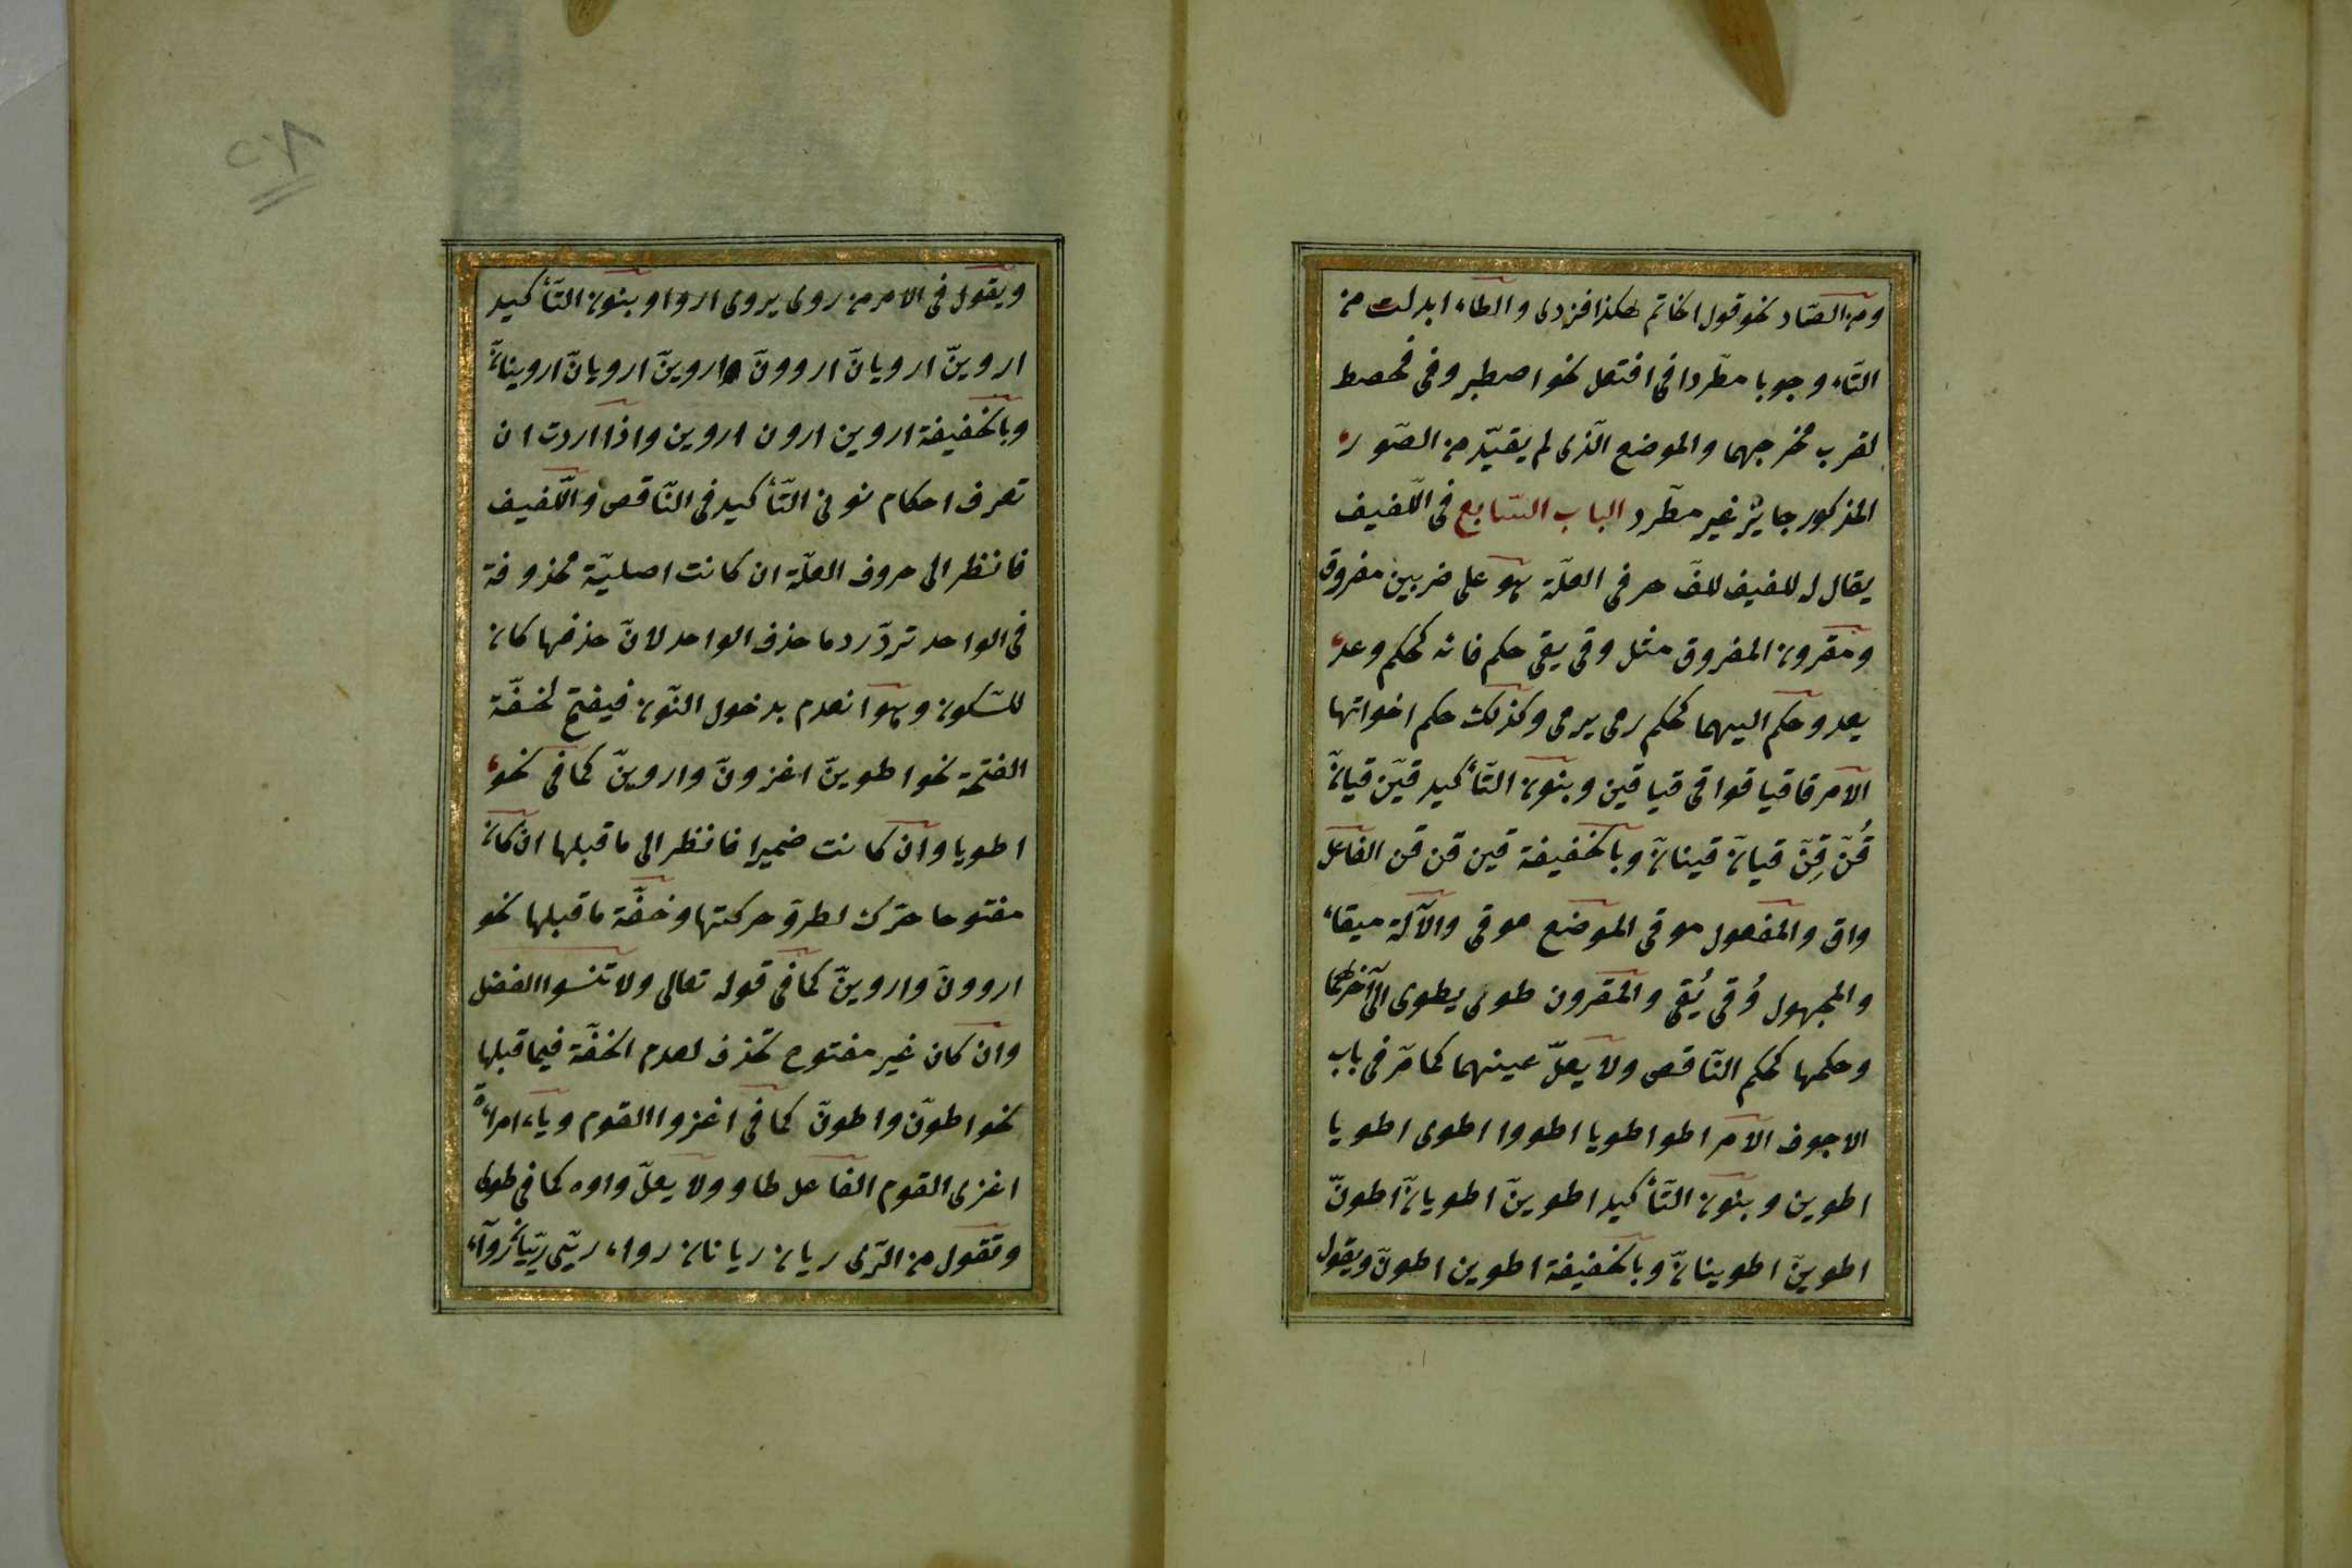 ومن الصّاد نحو قول الحاتم هكذا فزدى والطاء ابدلت من
التّاء وجوبا مطّردا فى افتعل نحو اصطبر وفى فحصط
لقرب مخرجهما والموضع الّذى لم يقيّد من الصّور
المذكور جايز غير مطّرد الباب السّابع فى اللّفيف
يقال له للفيف للفّ حرفى العلّة وهو على ضربين مفروق
ومقرون المفروق مثل وقى يقى حكم فائه كحكم وعد
يعد وحكم اليهما كحكم رمى يرمى وكذلك حكم اخواتها
الامر قا قيا قوا قى قيا قين وبنون التّأكيد قيّن قيانّ
قُنّ قِنّ قيانّ قينانّ وبالخفيفة قين قن قن الفاعل
واق والمفعول موقى الموضع موقى والآلة ميقاء
والمجهول وُقى يُقى والمقرون طوى يطوى الى آخرهما
وحكمها كحكم النّاقص ولا يعلّ عينهما كما مرّ فى باب
الاجوف الامر اطو اطويا اطووا اطوى اطويا
اطوين وبنون التّأكيد اطوينّ اطويانّ اطونّ
اطوينّ اطوينانّ وبالخفيفة اطوين اطونّ ويقول
ويقول فى الامر من روى يروى اروا وبنون التّأكيد
اروينّ ارويانّ اروونّ اروينّ ارويانّ اروينانّ
وبالخفيفة اروين ارون اروين واذا اردت ان
تعرف احكام نونى التّأكيد فى النّاقص واللّفيف
فانظر الى حروف العلّة ان كانت اصليّة محذوفة
فى الواحد تردّ رد ما حذف الواحد لانّ حذفها كان
للسّكون وهو انعدم بدخول النّون فيفتح لخفّة
الفتحة نحو اطوينّ اغزونّ واروينّ كما فى نحو
اطويا وان كانت ضميرا فانظر الى ما قبلها ان كان
مفتوحا حرّك لطروّ حركتها وخفّة ما قبلها نحو
اروونّ واروينّ كما فى قوله تعالى ولا تنسوا الفضل
وان كان غير مفتوح تحذف لعدم الخفّة فيما قبلها
نحو اطونّ واطونّ كما فى اغزوا القوم وياء امراة
اغزى القوم الفاعل طاو ولا يعلّ واوه كما فى طوى
وتقول من الرّى ريان ريانان رواء ريّى ريّيا نحو رواء
٢٨